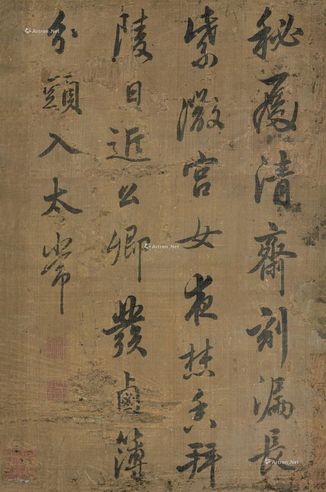 秘殿清齋刻漏長
紫微宮女夜焚香拜
陵日近公卿發鹵簿
分頭入太常
Artron.Net
Artron.Net
Artron.Net
Artron.Net
Artron.Net